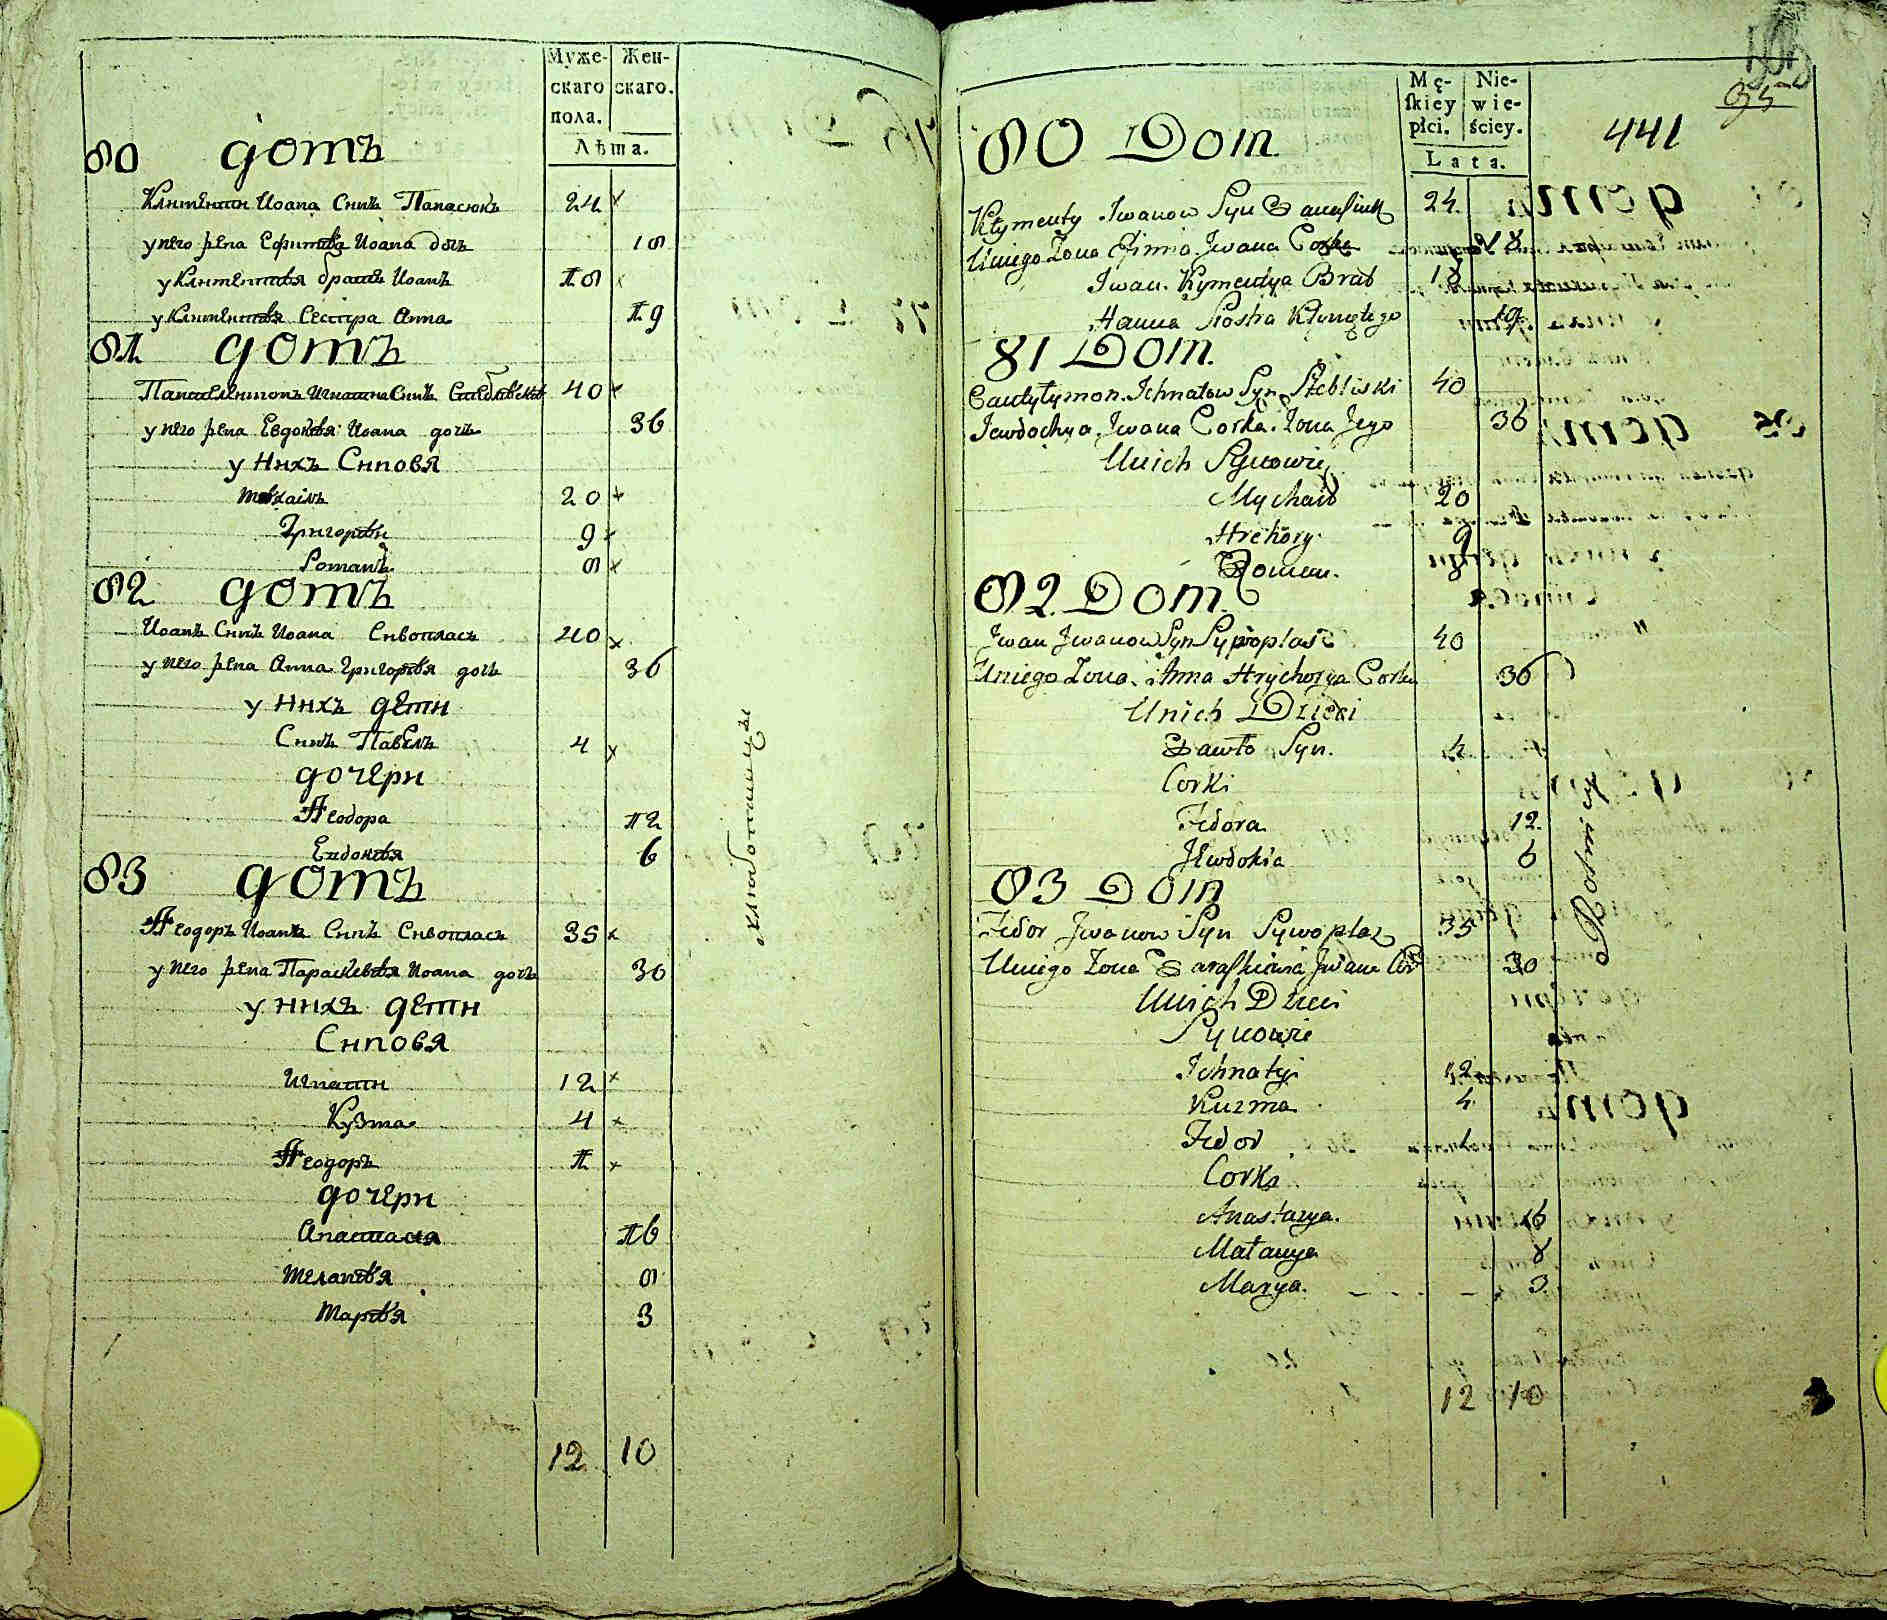 Муже-
скаго
пола.
Жен-
скаго.
Лѣта.
80 домъ
Климентии Иоана Синъ Панасюкъ 24
у него жена Ефимѣя Иоана дочь 18
у Климентѣя братъ Иоанъ 18
у Климентѣя Сестра Анна 19
81 домъ
Пантелеимонъ Игнатиа Синъ 40
у него жена Евдокѣя Иоана дочь 36
у Нихъ Синовя
михаилъ 20
Григорѣи 9
Романъ 8
82 домъ
Иоанъ Синъ Иоана Сивоплясъ 40
у него жена Анна Григорѣя дочь 36
у Нихъ дети
Синъ Павелъ 4
дочери
Ѳеодора 12
Евдокѣя 6
83 домъ
Ѳеодоръ Иоанъ Синъ Сивоплясъ 35
у него жена Параскевѣя Иоана дочь 30
у нихъ дети
Синовя
Игнатии 12
Кузма 4
Ѳеодоръ 1
дочери
Анастасия 16
меланѣя 8
марѣя 3
12 10
Mę-
ſkiey
płci.
Nie-
wie-
ściey.
Lata.
95
441
80 Dom
Kłymenty Iwanow Syn Panasiuk 24
Uniego Żona Efimia Iwana Corka 18
Iwan Kłymentya Brat 18
Hanna Siostra Kłymętego 19
81 Dom.
Pantyłymon Ichnatow Syn Stebliski 40
Jewdochya Iwana Corka Żona Jego 36
Unich Synowie
Mychaiło 20
Hrehory 9
Roman. 8
82 Dom
Iwan Iwanow Syn Sywoplas 40
Uniego Żona Anna Hrychorya Corka 36
Unich Dzieci
Pawło Syn. 4
Corki
Fedora 12
Jewdokia 6
83 Dom
Fedor Iwanow Syn Sywoplaz 35
Uniego Żona Paraskiewia Iwana Cor 30
Unich Dzieci
Synowie
Ichnatyi 12
Kuzma 4
Fedor 1
Corki
Anastazya. 16
Małanya 8
Marya. 3
12 10